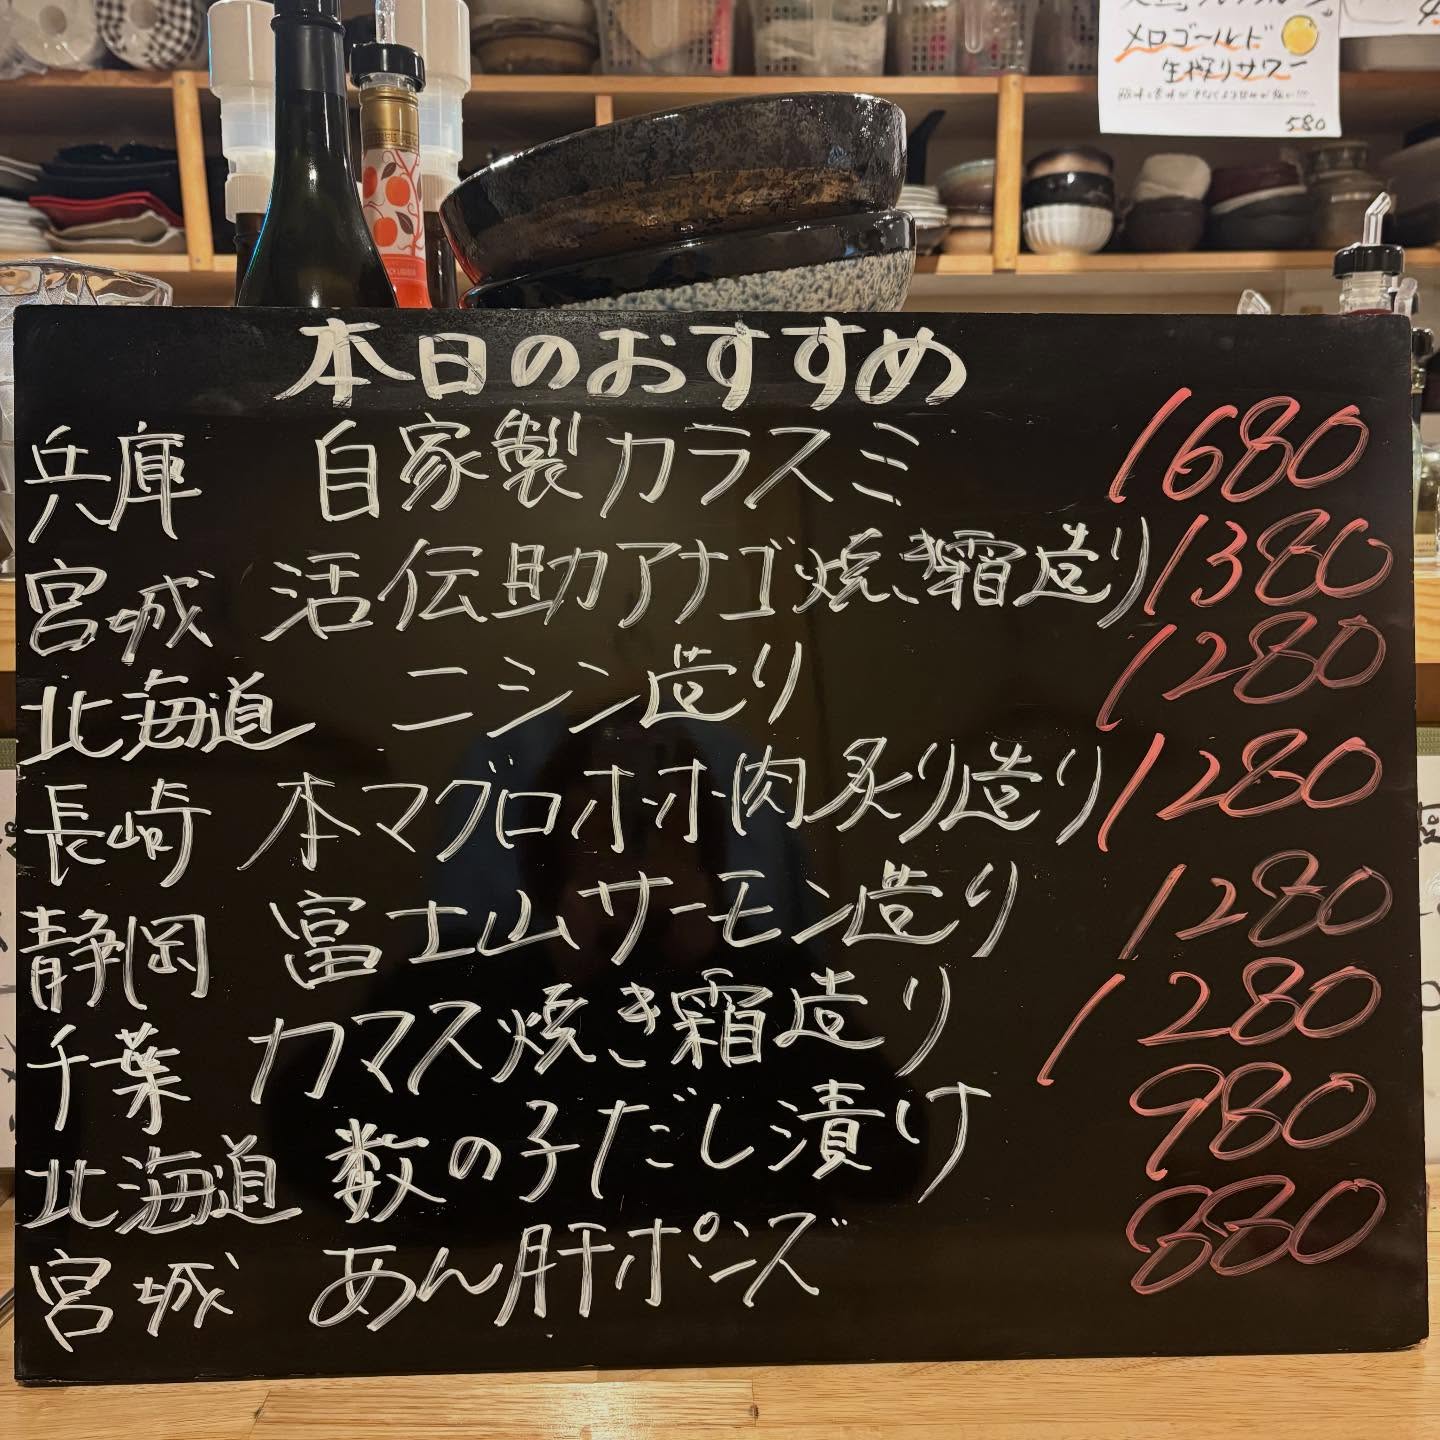 メロゴールド
生搾りサワー
580
本日のおすすめ
兵庫 自家製カラスミ 1680
宮城 活伝助アナゴ焼き霜造り 1380
北海道 ニシン造り 1280
長崎 本マグロホホ肉炙り造り 1280
静岡 富士山サーモン造り 1280
千葉 カマス焼き霜造り 1280
北海道 数の子だし漬け 980
宮城 あん肝ポンズ 880